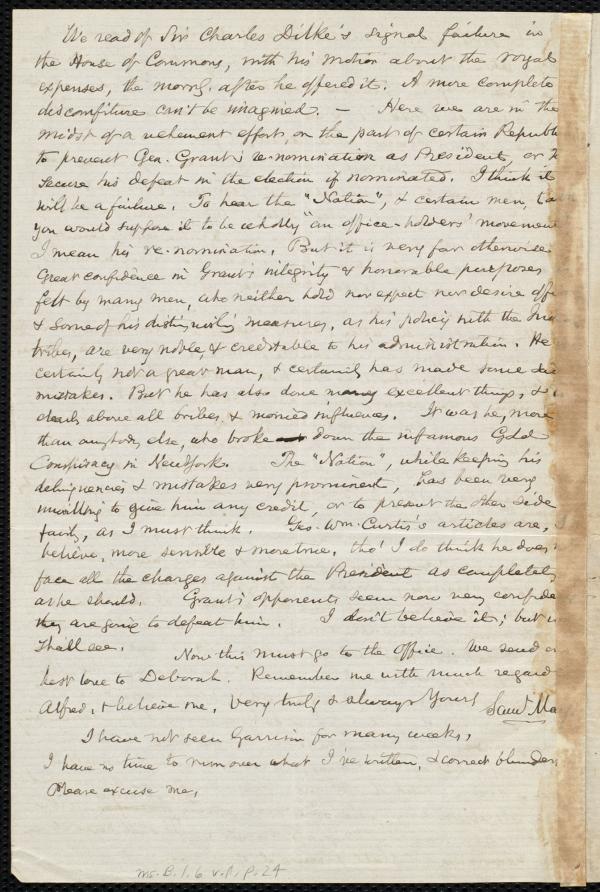 We read of Sir Charles Dilke's signal failure in
the House of Commons, with his motion about the royal
expenses, the morng. after he offered it. A more complete
discomfiture can't be imagined. — Here we are in the
midst of a vehement effort, on the part of certain
to prevent Gen. Grant's re-nomination as President, or
secure his defeat in the election if nominated. I think it
will be a failure. To hear the "Nation", & certain men,
you would suppose it to be wholly "an office-holders' movement
I mean his re-nomination. But it is very far otherwise
Great confidence in Grant's integrity & honorable purposes
felt by many men, who neither hold nor expect nor desire
& some of his distinguishing measures, as his policy with the
tribes, are very noble, & creditable to his administration. He
certainly not a great man, & certainly has made some
mistakes. But he has also done many excellent things, &
clearly above all bribes & monied influences. It was he, more
than anybody else, who broke down the infamous Gold
Conspiracy in New York. The "Nation", while keeping his
delinquencies & mistakes very prominent, has been very
unwilling to give him any credit, or to present the other side
fairly, as I must think. Geo. Wm. Curtis's articles are, I
believe, more sensible & more true, tho' I do think he does
face all the charges against the President as completely
as he should. Grant's opponents seem now very
they are going to defeat him. I don't believe it; but
shall see. Now this must go to the office. We send
best love to Deborah. Remember me with much regard
Alfred, & believe me, very truly & always Yours Saml. May
I have not seen Garrison for many weeks,
I have no time to run over what I've written, & correct blunders
Please excuse me,
Ms. B. 1. 6 v. 1. p. 24